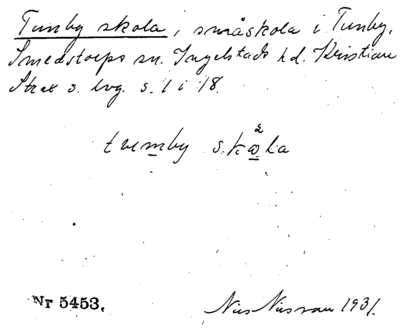 Tumby skola, småskola i Tumby,
Smedstorps sn. Ingelstads hd. Kristian
stads l. s. 1 i 18.
tvemby skola
Nr 5453.
Nils Nilsson 1931.